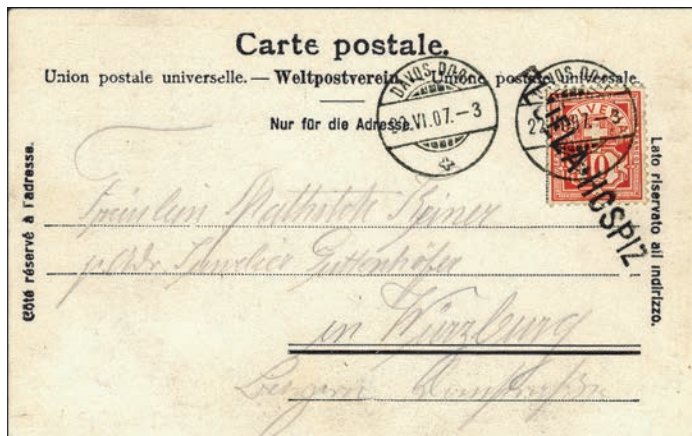 Carte postale.
Union postale universelle. — Weltpostverein. — Unione postale universale
Nur für die Adresse.
DAVOS-DORF
22.VI.07.–3
DAVOS-DORF
22.VI.07.–3
HELVETIA
10
FLÜELA-HOSPIZ
Côté réservé à l'adresse.
Lato riservato all indirizzo.
Fräulein Mathilde
p. Adr.
in Würzburg
Bayern